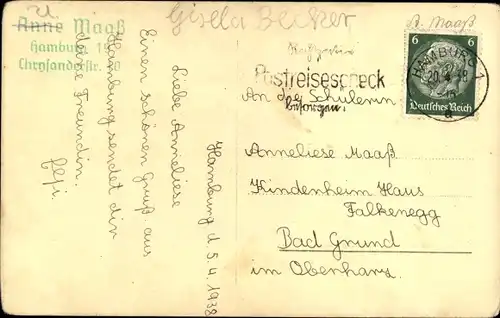 U.
Anne Maaß
Hamburg 19
Chrysanderstr.
Gisela Becker
A. Maaß
Postreisescheck
besorgen!
HAMBURG 1
6 6
Deutsches Reich
An die Schülerin
Anneliese Maaß
Kindenheim Haus
Falkenegg
Bad Grund
im Oberharz.
Hamburg d 5.4.1938
Liebe Anneliese
Einen schönen Gruß aus
Hamburg sendet dir
deine Freundin.